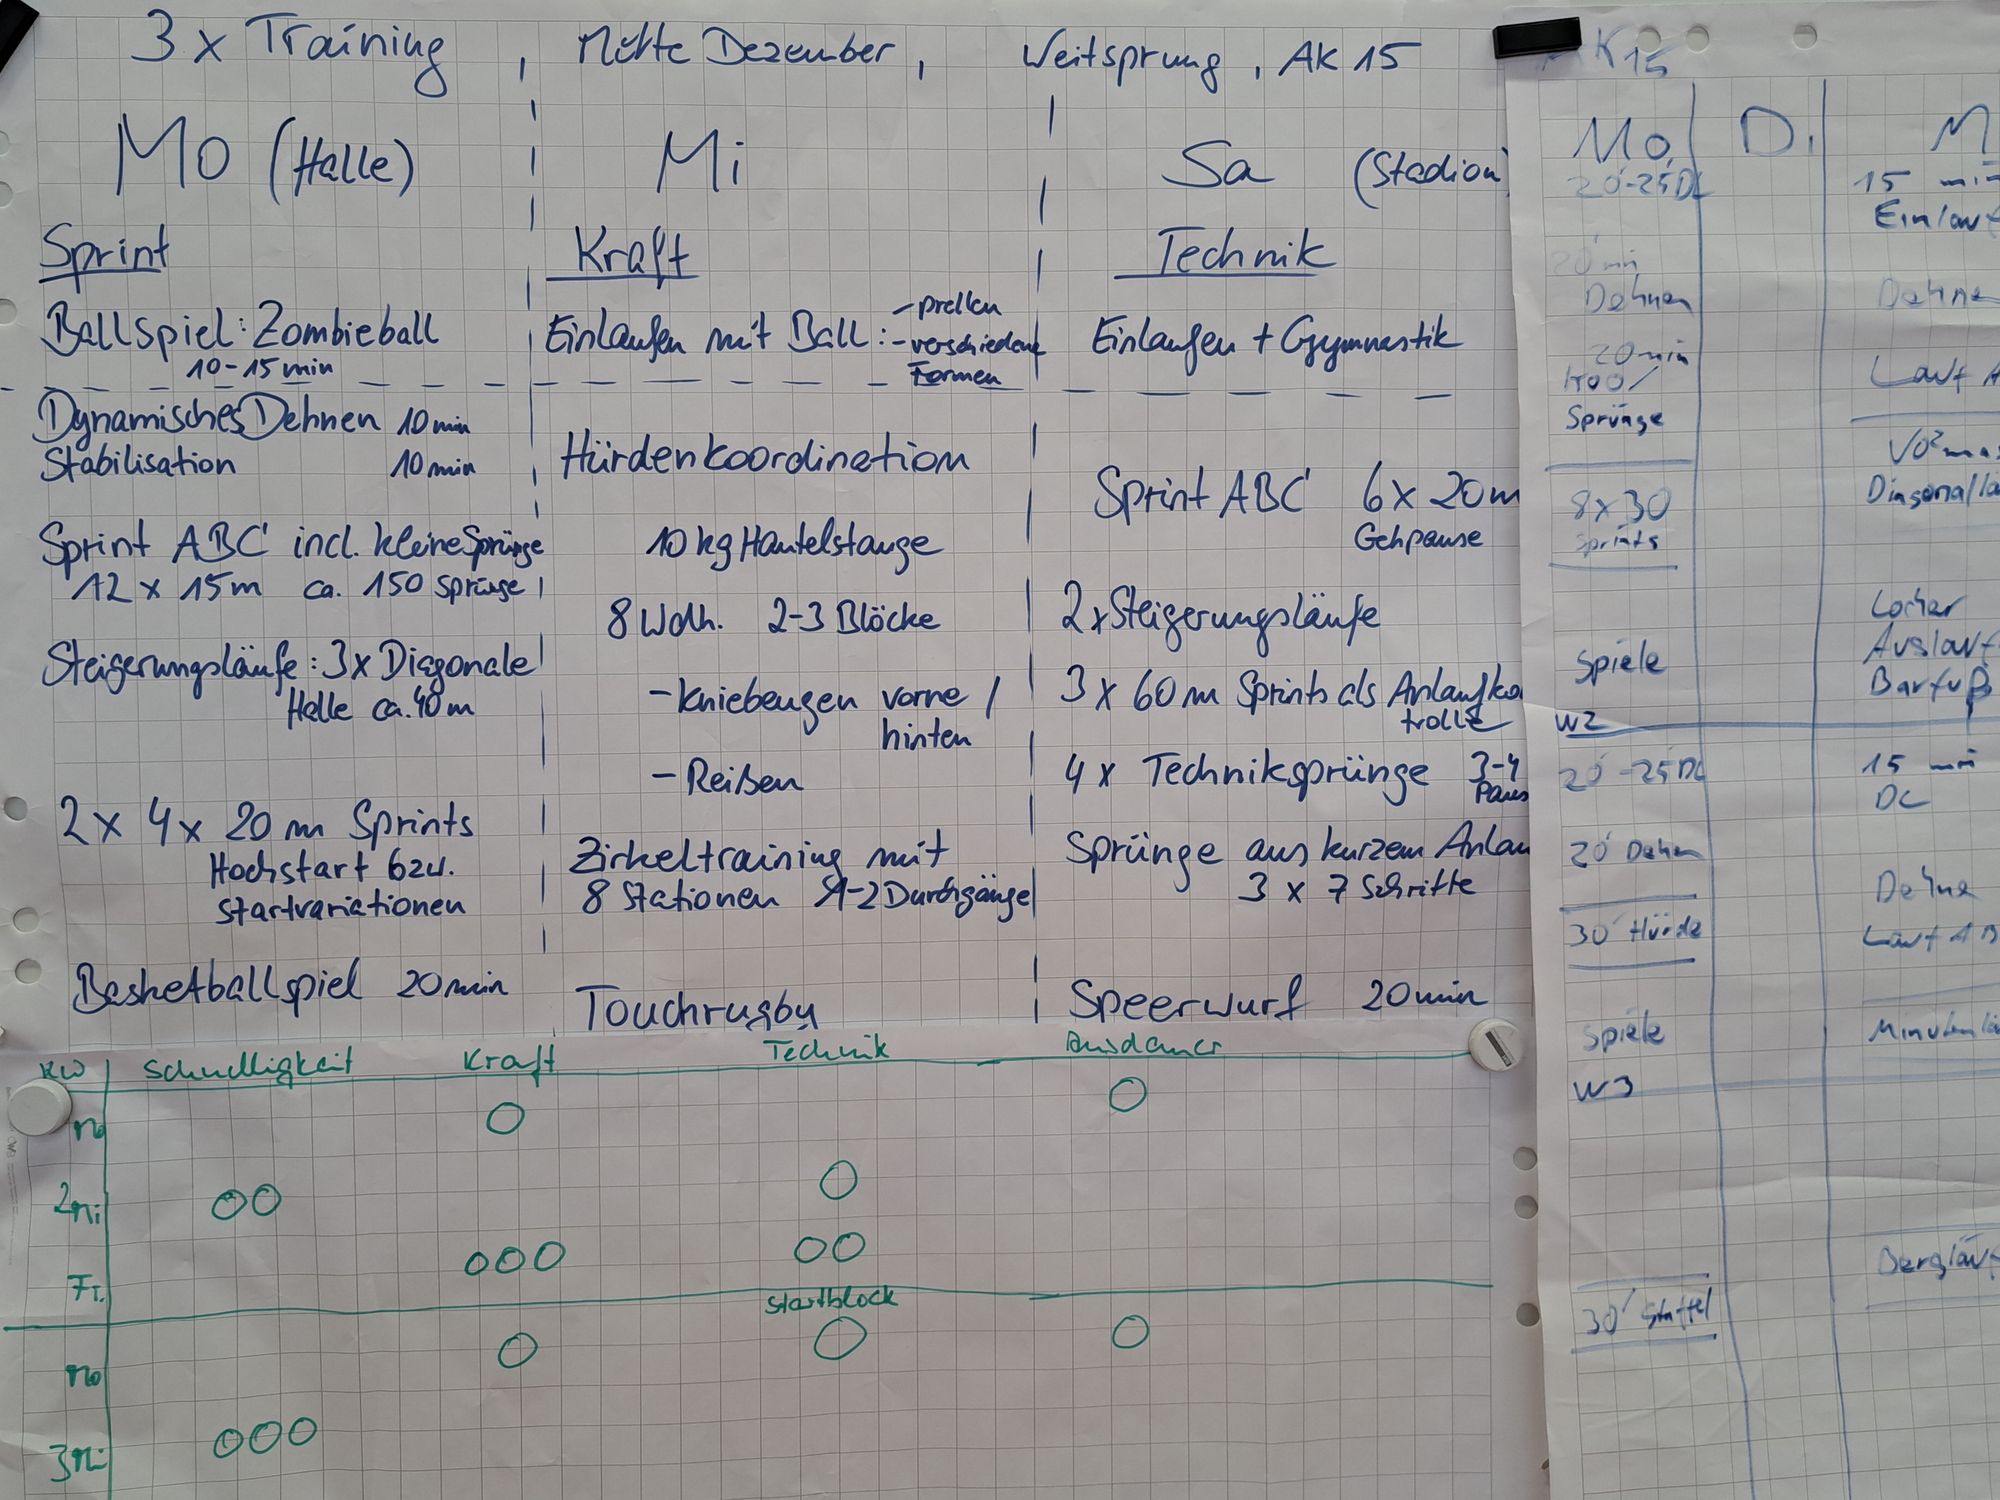 3 x Training , Mitte Dezember, Weitsprung, AK 15
Mo (Halle)
Sprint
Ballspiel: Zombieball
10-15 min
Dynamisches Dehnen 10 min
Stabilisation 10 min
Sprint ABC incl. kleine Sprünge
12 x 15m ca. 150 Sprünge
Steigerungsläufe: 3x Diagonale
Halle ca. 40m
2x 4x 20m Sprints
Hochstart bzw.
Startvariationen
Basketballspiel 20min
Mi
Kraft
Einlaufen mit Ball: - prellen
- verschiedene
Formen
Hürdenkoordination
10 kg Hantelstange
8 Wdh. 2-3 Blöcke
- Kniebeugen vorne /
hinten
- Reißen
Zirkeltraining mit
8 Stationen 1-2 Durchgänge
Touchrugby
Sa (Stadion)
Technik
Einlaufen + Gymnastik
Sprint ABC 6x 20m
Gehpause
2x Steigerungsläufe
3 x 60m Sprints als Anlaufko
trolle
4x Techniksprünge 3-4
Paus
Sprünge aus kurzem Anlau
3 x 7 Schritte
Speerwurf 20min
KW Schnelligkeit Kraft Technik Ausdauer
Mo
2 Mi
Fr.
Startblock
Mo
3 Mi
K 15
Mo Di M
20'-25 DL
20 min
Dehnen
20 min
Koo/
Sprünge
8x30
Sprints
Spiele
W2
20'-25 DL
20' Dehnen
30' Hürde
Spiele
W3
30' Staffel
15 min
Einlauf
Dehne
Lauf A
VO²max
Diagonallä
Locker
Auslauf
Barfuß
15 min
DL
Dehne
Lauf AB
Minutenlä
Bergläuf